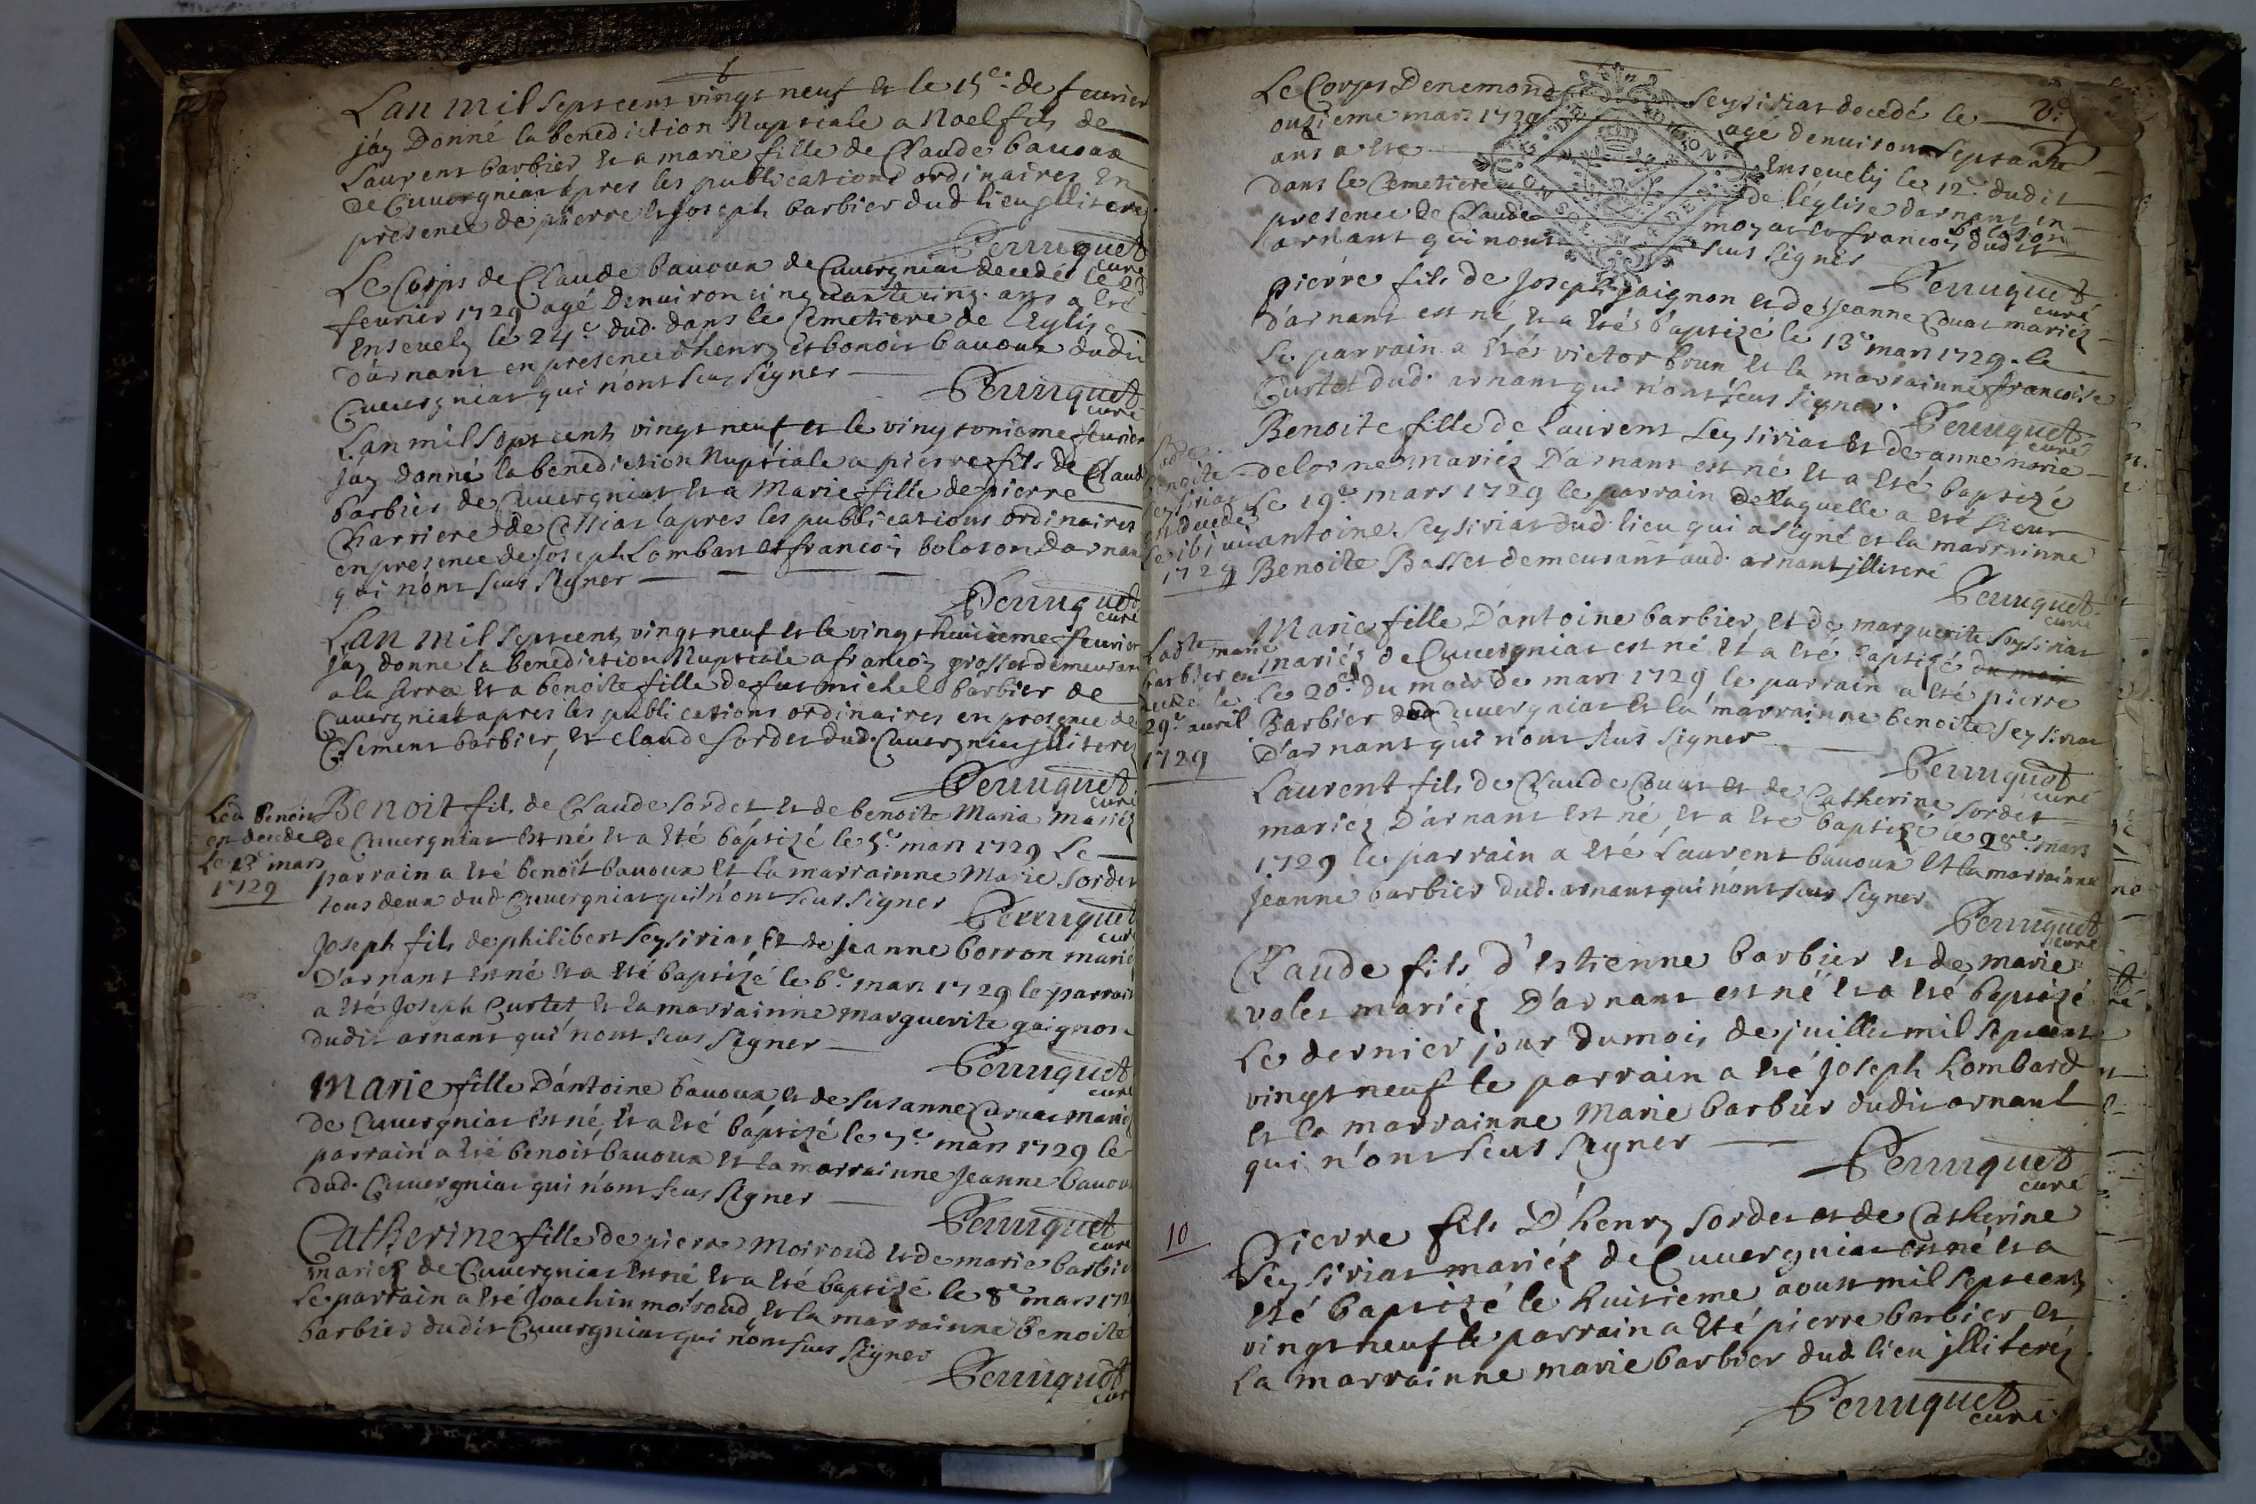 Lan mil sept cent vingt neuf et le 15e de feurier
j'ay Donné la benediction Nuptiale a Noel fils de
Laurent barbier et a marie fille de Claude bauoux
de Cuuergniat apres les publications ordinaires en
presence de pierre et Joseph barbier dud lieu jlliterez
Perruquet
curé
Le Corps de Claude bauoux de Cuuergniat decedé le
feurier 1729 agé denuiron cinquante cinq ans a eté
Enseuely le 24e dud. dans le Cemetiere de l'Eglise
d'arnant en presence d'henry et benoit bauoux dudit
Cuuergniat qui n'ont seus signer
Perruquet
curé
Lan mil sept cents vingt neuf et le vingt feurier
j'ay donné la benediction Nuptiale a pierre fils de Claud
barbier de Cuuergniat et a Marie fille de pierre
Charriere de Cessiat apres les publications ordinaires
en presence de Joseph Lombart et francois boloson Darnan
qui n'ont seus signer
Perruquet
curé
Lan mil sept cents vingt neuf et le vingt huitieme feurier
j'ay donne la benediction Nuptiale a francois grosset demeurant
a la serra et a benoite fille de fut michel barbier de
Cuuergniat apres les publications ordinaires en presence de
Clement barbier, et claude sordet dud. Cuuergniat jlliterez
Perruquet
curé
Led Benoit
est decede
Le 13e mars
1729
Benoit fils de Claude sordet et de benoite Maria Mariez
de Cuuergniat est né et a eté baptizé le 5e mars 1729 Le
parrain a eté benoit bauoux et la marrainne Marie Sordet
tous deux dud Cuuergniat qui n'ont seus signer Perruquet
curé
Joseph fils de philibert Seysiriat et de jeanne borron marié
D'arnant est né et a eté baptizé le 6e mars 1729 le parrain
a eté Joseph Curtet et la marrainne marguerite gaignon
dudit arnant qui n'ont seus signer
Perruquet
curé
Marie fille D'antoine bauoux et de Susanne Caruat Mariez
de Cuuergniat est né, et a eté baptizé le 7e mars 1729 le
parrain a eté benoit bauoux et la marrainne Jeanne bauoux
dud. Cuuergniat qui n'ont seus signer
Perruquet
curé
Catherine fille de pierre Moiroud et de marie barbier
mariez de Cuuergniat est né et a eté baptizé le 8e mars 172
Le parrain a eté Joachin moiroud et la marrainne benoite
barbier dudit Cuuergniat qui n'ont seus signer
Perruquet
cur
Le Corps Denemond Seysiriat decedé le
onzieme mars 1729 agé denuiron septante
ans a eté Enseuely le 12e dudit
dans le Cemetiere de l'église darnant en
presence de Claude moyat et francois boloson dudit
arnant qui n'ont seus signer
Perruquet
curé
pierre fils de Joseph gaignon et de Jeanne Couat mariez
D'arnant est né, et a eté baptizé le 13e mars 1729. le
Le parrain a etés victor brun et la marrainne francoise
Curtet dud. arnant qui n'ont seus signer.
Perruquet
curé
benoite
Seysiriat
est decedé
1729
Benoite fille de Laurent Seysiriat et de anne marie
delorne mariez D'arnant est né et a eté baptizé
Le 19e mars 1729 le parrain de laquelle a eté sieur
antoine Seysiriat dud. lieu qui a signé et la marrainne
Benoite Basset demeurant aud. arnant jlliteré
Perruquet
curé
Ladte marie
barbier est
decedé le
29e auril
1729
Marie fille D'antoine barbier, et de marguerite Seysiriat
mariéz de Cuuergniat est né et a eté baptizé du mois
le 20e du mois de mars 1729 le parrain a eté pierre
Barbier dud Cuuergniat et la marrainne benoite Seysiriat
D'arnant qui n'ont seus signer
Perruquet
curé
Laurent fils de Claude Couat et de Catherine Sordet
mariez D'arnant est né, et a eté baptizé le 28e mars
1729 le parrain a eté Laurent bauoux et la marrainne
Jeanne barbier dud. arnant qui n'ont seus signer
Perruquet
curé
Claude fils d'Estienne barbier et de marie
volet mariéz D'arnant est né et a eté baptizé
Le dernier jour du mois de juillet mil sept cent
vingt neuf le parrain a eté joseph Lombard
et la marrainne Marie barbier dudit arnant
qui n'ont seus signer
Perruquet
curé
10
Pierre fils D'henry Sordet et de Catherine
Seysiriat mariéz de Cuuergniat est né et a
eté baptizé le huitieme aoust mil sept cents
vingt neuf le parrain a eté pierre barbier et
la marrainne marie barbier dud lieu jlliteréz
Perruquet
curé